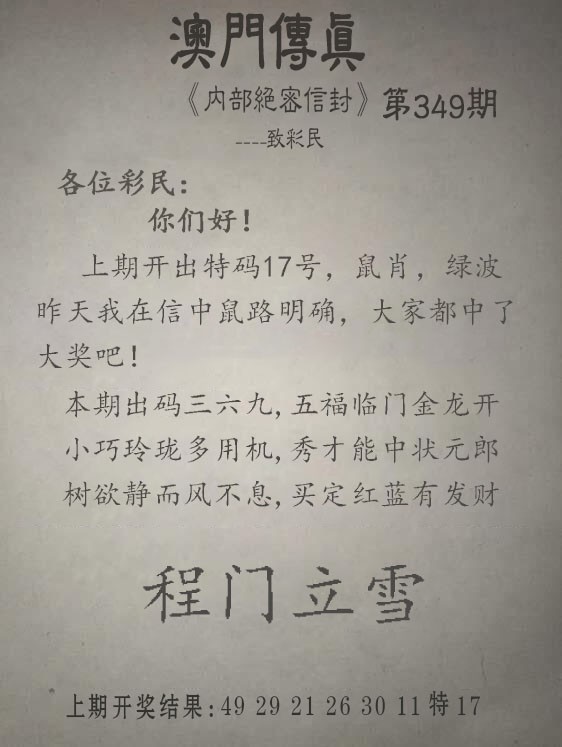 澳門傳真
《内部絕密信封》第349期
----致彩民
各位彩民：
你们好！
上期开出特码17号，鼠肖，绿波
昨天我在信中鼠路明确，大家都中了
大奖吧！
本期出码三六九,五福临门金龙开
小巧玲珑多用机,秀才能中状元郎
树欲静而风不息,买定红蓝有发财
程门立雪
上期开奖结果:49 29 21 26 30 11 特 17